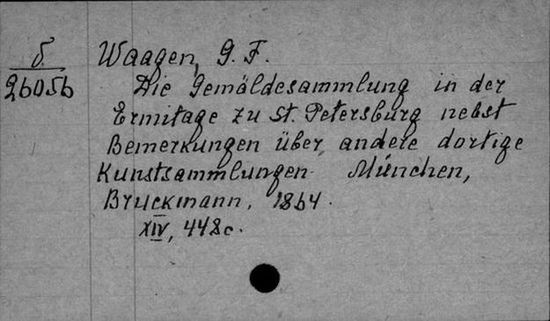 б
26056
Waagen, G. F.
Die Gemäldesammlung in der
Ermitage zu St. Petersburg nebst
Bemerkungen über andere dortige
Kunstsammlungen. München,
Bruckmann, 1864.
XIV, 448 c.